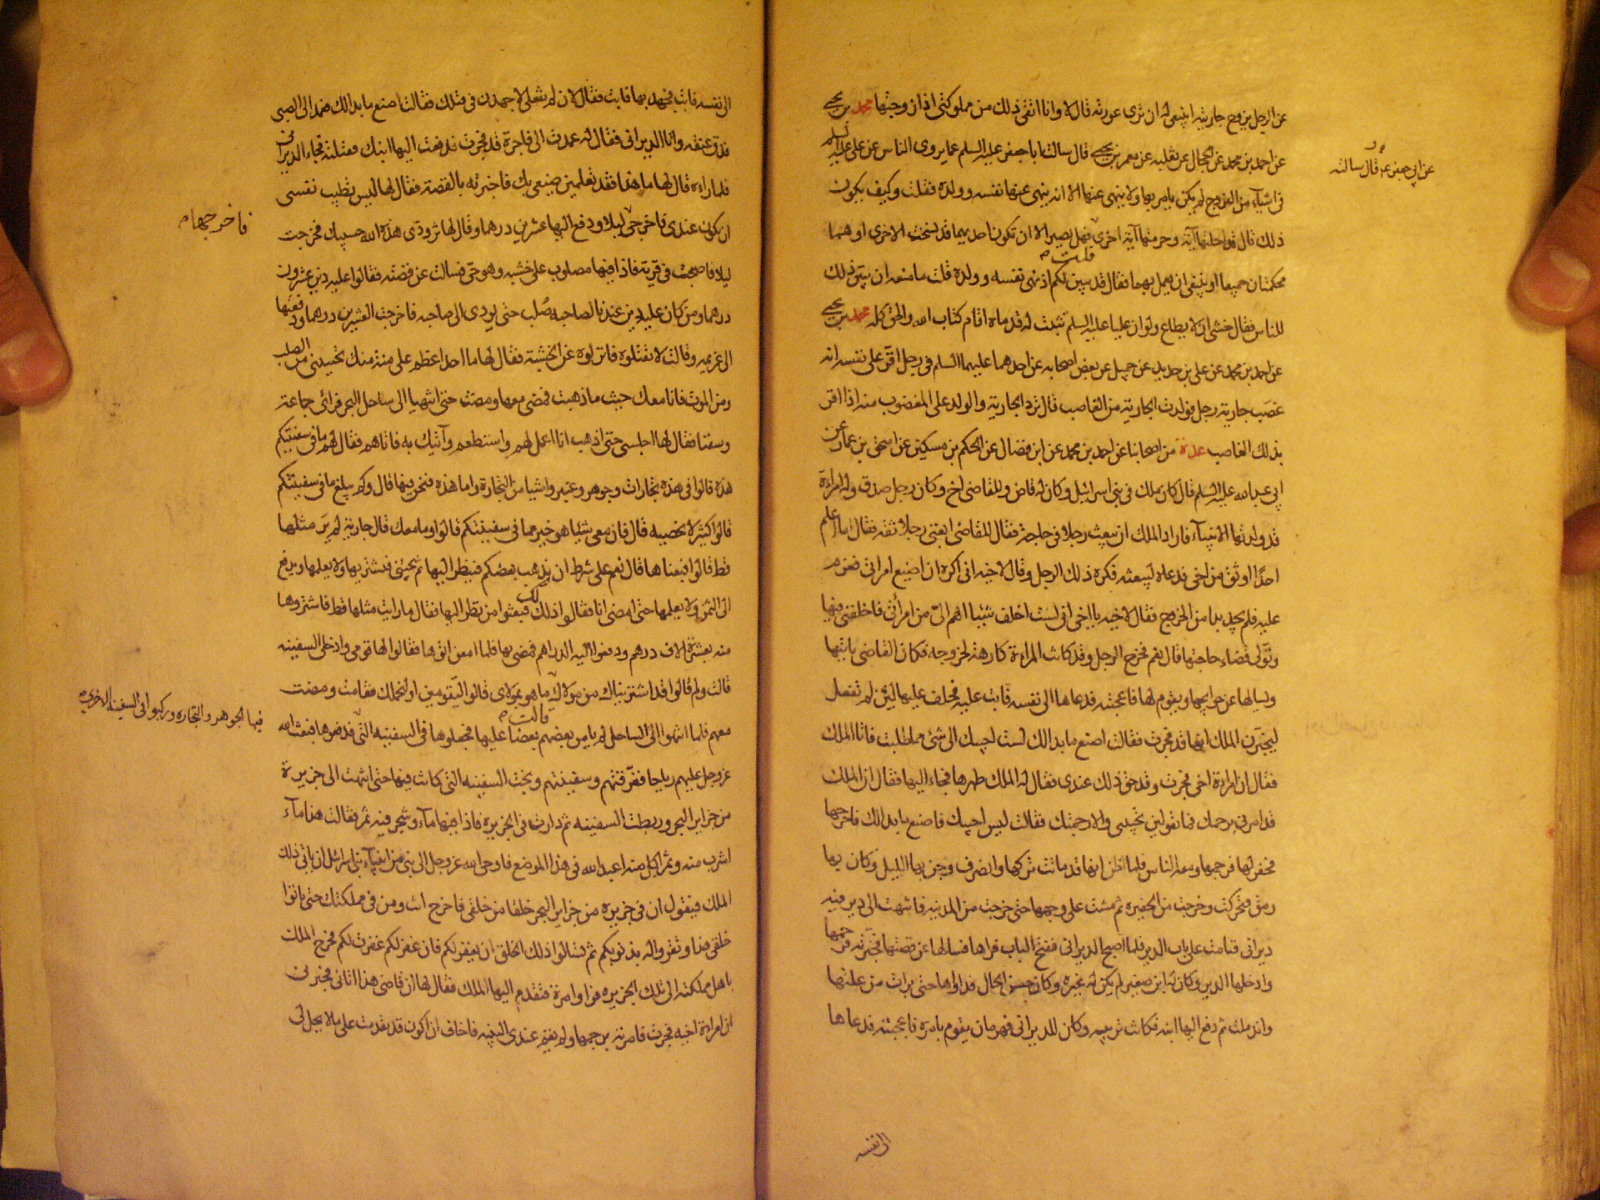 عن الرجل يزوج جاريته اينبغي له ان ترى عورته قال لا وانا اتقي ذلك من مملوكتي اذا زوجتها محمد بن يحيى
عن احمد بن محمد عن الحجال عن ثعلبه عن معمر بن يحيى قال سالت ابا جعفر عليه السلم عما يروى الناس عن علي عليه السلم
عن ابي جعفر ع قال سالته
في اشيآء من الفروج لم يكن يامر بها ولا ينهى عنها الا انه ينهى عنها نفسه وولده فقلت وكيف يكون
ذلك قال قد احلتها آية وحرمتها آية اخرى فهل يصير الا ان تكون احديهما قد نسخت الاخرى او هما
قلت
محكمتان جميعا او ينبغي ان يعمل بهما فقال قد بين لكم اذ نهى نفسه وولده قلت ما منعه ان يبين ذلك
للناس فقال خشي ان لا يطاع ولو ان عليا عليه السلم ثبتت له قدماه اقام كتاب الله والحق كله محمد بن يحيى
عن احمد بن محمد عن علي بن حديد عن جميل عن بعض اصحابه عن احدهما عليهما السلم في رجل اقر على نفسه انه
غصب جارية رجل فولدت الجارية من الغاصب قال ترد الجارية والولد على المغصوب منه اذا اقر
بذلك الغاصب عدة من اصحابنا عن احمد بن محمد عن ابن فضال عن الحكم بن مسكين عن اسحق بن عمار عن
ابي عبد الله عليه السلم قال كان ملك في بني اسرائيل وكان له قاض وللقاضي اخ وكان رجل صدق وله امراة
قد ولدتها الانبيآء فاراد الملك ان يبعث رجلا في حاجة فقال للقاضي ابغني رجلا ثقة فقال ما اعلم
احدا اوثق من اخي فدعاه ليبعثه فكره ذلك الرجل وقال لاخيه اني اكره ان اضيع امراتي فعزم
عليه فلم يجد بدا من الخروج فقال لاخيه يا اخي اني لست اخلف شيئا اهم الي من امراتي فاخلفني فيها
وتولى قضاء حاجتها قال نعم فخرج الرجل وقد كانت المراة كارهة لخروجه فكان القاضي ياتيها
ويسالها عن حوايجها ويقوم لها فاعجبته فدعاها الى نفسه فابت عليه فحلف عليها لئن لم تفعل
ليخبرن الملك انها قد فجرت فقالت اصنع ما بدا لك لست اجيبك الى شئ مما طلبت فاتا الملك
فقال ان امراة اخي فجرت وقد حق ذلك عندي فقال له الملك طهرها فجاء اليها فقال ان الملك
قد امرني برجمك فما تقولين تجيبيني والا رجمتك فقالت لست اجيبك فاصنع ما بدا لك فاخرجها
فحفر لها فرجمها ومعه الناس فلما ظن انها قد ماتت تركها وانصرف وجن بها الليل وكان بها
رمق فتحركت وخرجت من الحفيره ثم مشت على وجهها حتى خرجت من المدينه فانتهت الى دير فيه
ديراني فنامت على باب الدير فلما اصبح الديراني ففتح الباب فراها فسالها عن قصتها فخبرته فرحمها
وادخلها الدير وكان له ابن صغير لم يكن له غيره وكان حسن الحال فداواها حتى برات من علتها
واندملت ثم دفع اليها ابنه فكانت تربيه وكان للديراني قهرمان يقوم بامره فاعجبته فدعاها
الى نفسه
الى نفسه فابت فجهد بها فابت فقال لان لم تفعلي لاجهدن في قتلك فقالت اصنع ما بدا لك فعمد الى الصبي
فدق عنقه واتا الديراني فقال له عمدت الى فاجرة قد فجرت فدفعت اليها ابنك فقتلته فجاء الديراني
فلما راه قال لها ما هذا فقد تعلمين صنيعي بك فاخبرته بالقصة فقال لها ليس تطيب نفسي
ان تكون عندي فاخرجي ليلا ودفع اليها عشرين درهما وقال لها تزودي هذه الله حسبك فخرجت
فاخرجها م
ليلا فاصبحت في قرية فاذا فيها مصلوب على خشبه وهو حي فسالت عن قصته فقالوا عليه دين عشرون
درهما ومن كان عليه دين عندنا لصاحبه صلب حتى يودى الى صاحبه فاخرجت العشرين درهما ودفعتها
الى غريمه وقالت لا تقتلوه فانزلوه عن الخشبة فقال لها ما احد اعظم علي منة منك نجيتني من الصلب
ومن الموت فانا معك حيث ما ذهبت فمضى معها ومضت حتى انتهيا الى ساحل البحر فراى جماعة
وسفنا فقال لها اجلسي حتى اذهب انا اعمل لهم واستطعم وآتيك به فاتاهم فقال لهم ما في سفينتكم
هذه قالوا في هذه تجارات وجوهر وعنبر واشيا من التجارة واما هذه فنحن فيها قال وكم يبلغ ما في سفينتكم
قالوا كثير لا نحصيه قال فان معي شيئا هو خير مما في سفينتكم قالوا وما معك قال جارية لم تر مثلها
قط قالوا فبعناها قال نعم على شرط ان يذهب بعضكم فينظر اليها ثم يجيئني فيشتريها ولا يعلمها ويدفع
الى الثمن ولا يعلمها حتى امضي انا فقالوا ذلك لك فبعثوا من نظر اليها فقال ما رايت مثلها قط فاشتروها
منه بعشرة الاف درهم ودفعوا اليه الدراهم فمضى بها فلما امعن اتوها فقالوا لها قومي وادخلي السفينه
قالت ولم قالوا قد اشتريناك من مولاك قالت ما هو بمولاي قالوا لتقومين او لنحملنك فقامت ومضت
معهم فلما انتهوا الى الساحل لم يامن بعضهم بعضا عليها فجعلوها في السفينه التي فيها الجوهر والتجاره وركبوا في السفينه الاخرى فدفعوها فبعث الله
عز وجل عليهم رياحا فغرقتهم وسفينتهم ونجت السفينه التي كانت فيها حتى انتهت الى جزيرة
من جزاير البحر وربطت السفينه ثم دارت في الجزيره فاذا فيها مآء وشجر فيه ثمر فقالت هذا مآء
اشرب منه وثمر اكل منه اعبد الله في هذا الموضع فاوحى الله عز وجل الى نبي من انبيآء بني اسرائيل ان ياتي ذلك
الملك فيقول ان في جزيره من جزاير البحر خلقا من خلقي فاخرج انت ومن في مملكتك حتى ياتوا
خلقي هذا وتقروا له بذنوبكم ثم تسالوا ذلك الخلق ان يغفر لكم فان غفر لكم غفرت لكم فخرج الملك
باهل مملكته الى تلك الجزيره فراوا امراة فتقدم اليها الملك فقال لها ان قاضي هذا اتاني فخبرني
ان امراة اخيه فجرت فامرته برجمها ولم يقم عندي البينه فاخاف ان اكون قد تقدمت على ما لا يحل لي